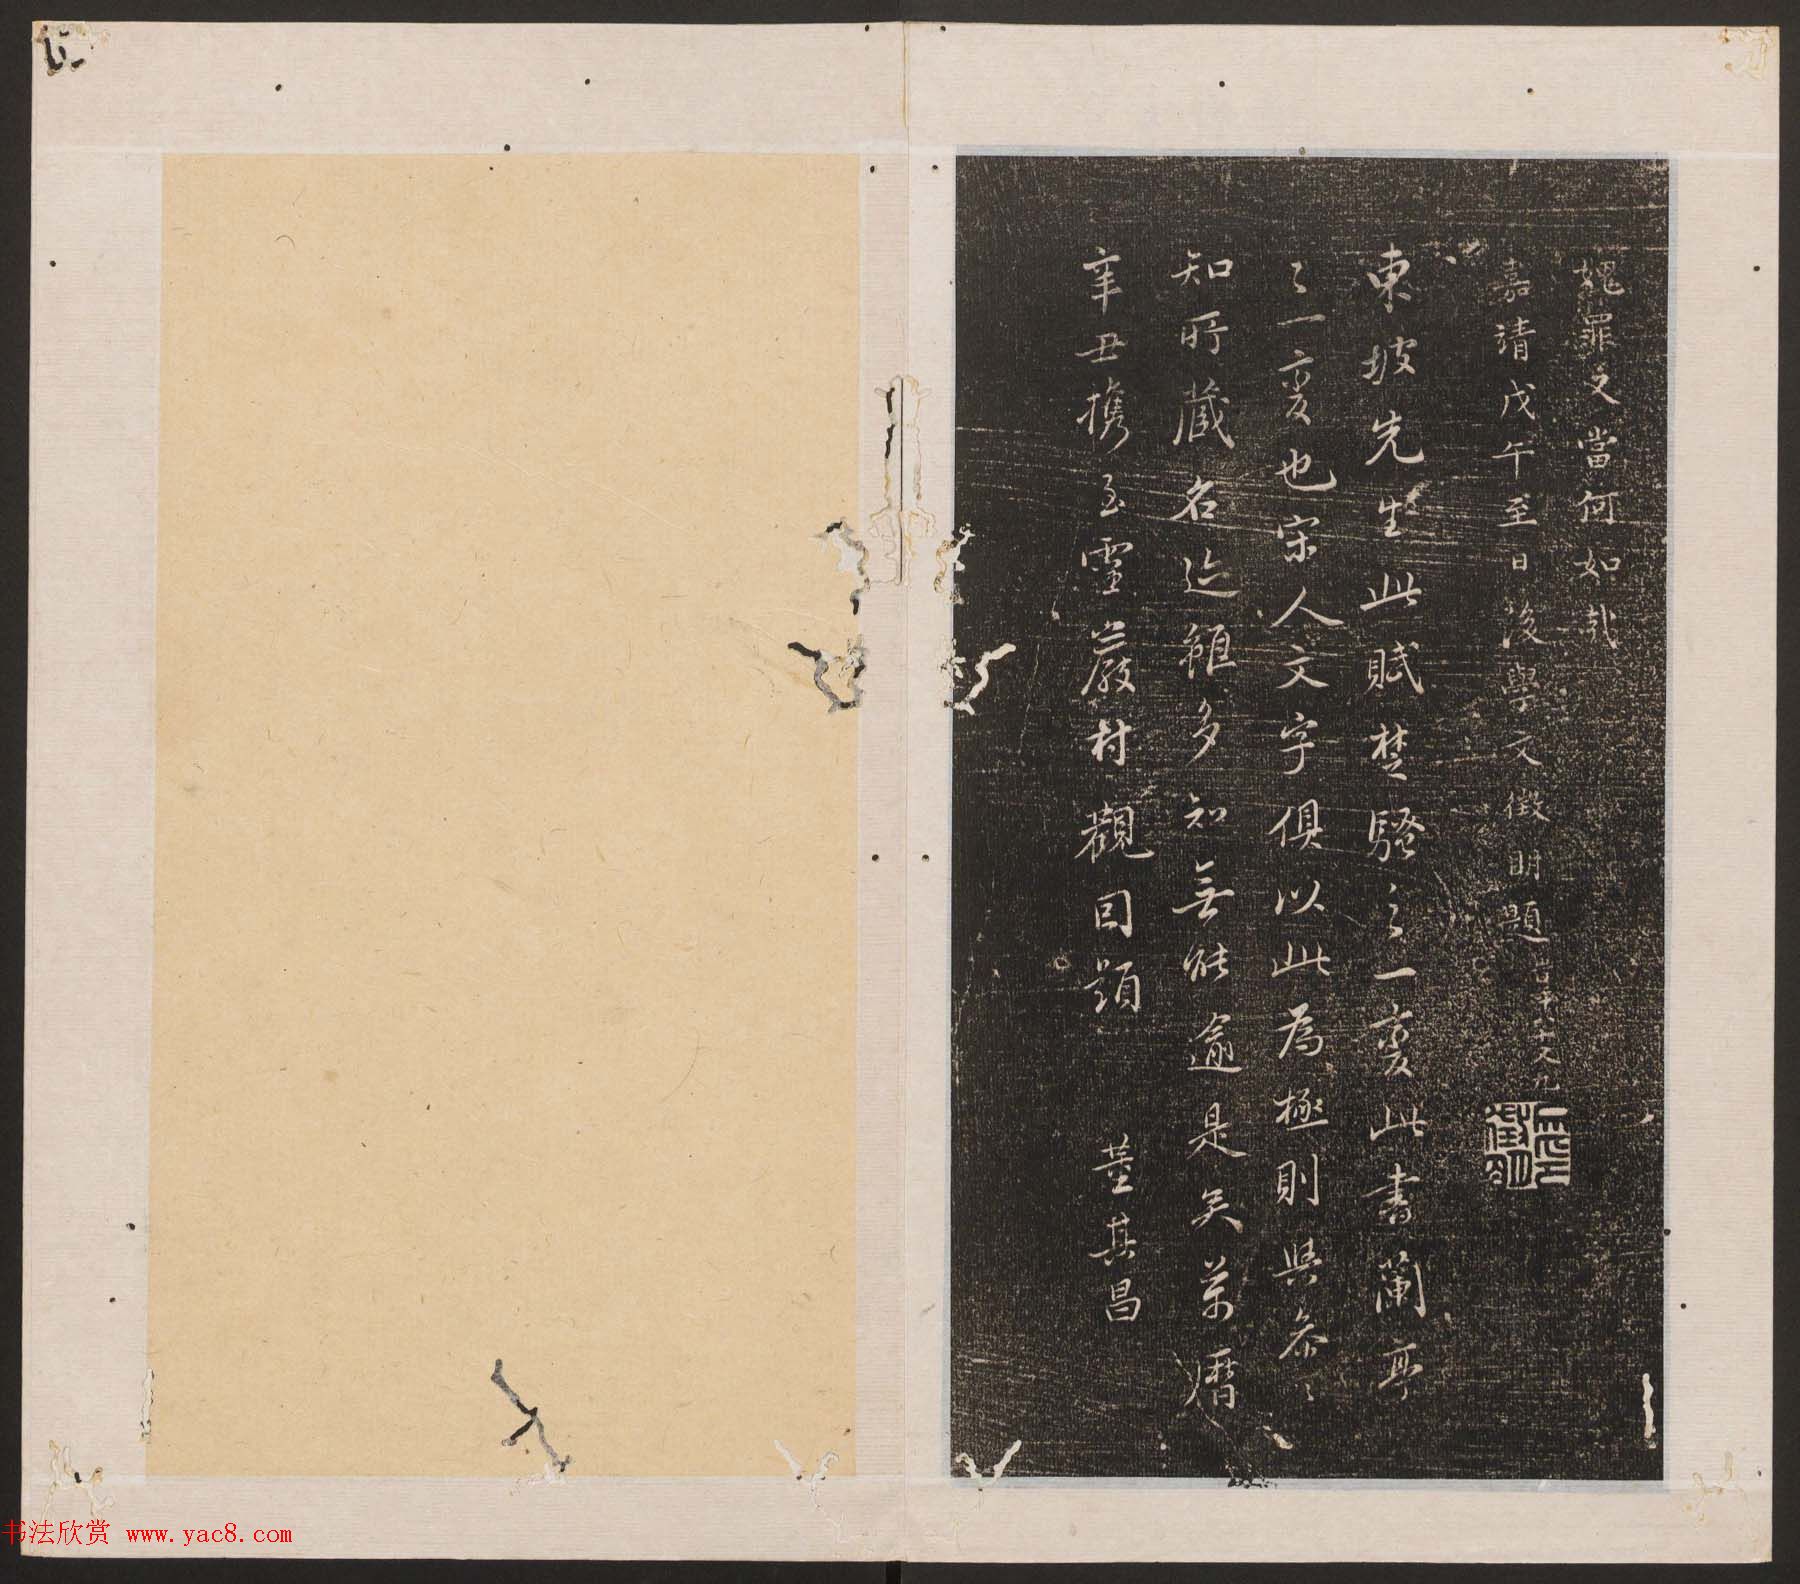 媿罪又當何如哉
嘉靖戊午至日後學文徵明題時年八十又九
東坡先生此賦楚騷之一變此書蘭亭
之一變也宋人文字俱以此為極則與參〻
知所藏名迹雖多知無能逾是矣萬曆
辛丑攜至靈巖村觀因題 董其昌
书法欣赏 www.yac8.com